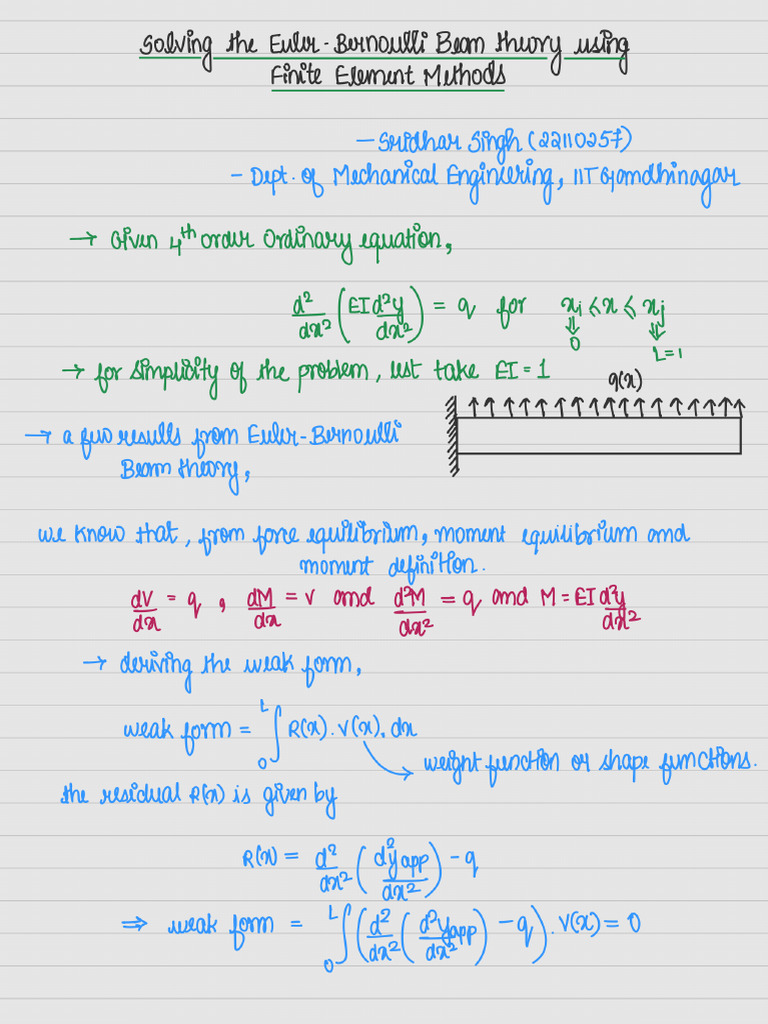 Solving the Euler-Bernoulli Beam theory using
Finite Element Methods
- Sridhar Singh (22110257)
- Dept. of Mechanical Engineering, IIT Gandhinagar
→ Given 4th order Ordinary equation,
d²/dx² (EI d²y/dx²) = q for xi ≤ x ≤ xj
0 L=1
→ for simplicity of the problem, lest take EI = 1
q(x)
→ a few results from Euler-Bernoulli
Beam theory,
we know that, from force equilibrium, moment equilibrium and
moment definition.
dV/dx = q, dM/dx = v and d²M/dx² = q and M = EI d²y/dx²
→ deriving the weak form,
weak form = ∫₀ᴸ R(x). V(x). dx
weight function or shape functions.
the residual R(x) is given by
R(x) = d²/dx² (d²yapp/dx²) - q
⇒ weak form = ∫₀ᴸ (d²/dx² (d²yapp/dx²) - q). V(x) = 0